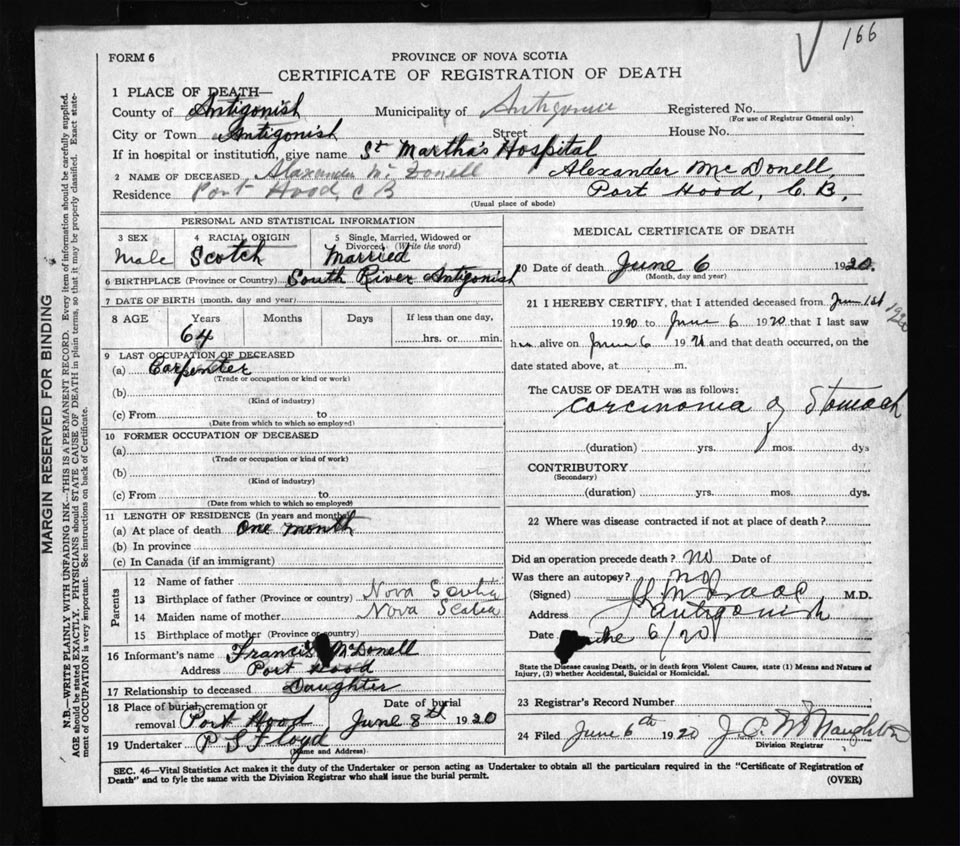 166
FORM 6
PROVINCE OF NOVA SCOTIA
CERTIFICATE OF REGISTRATION OF DEATH
1 PLACE OF DEATH—
County of Antigonish Municipality of Antigonish Registered No.
(For use of Registrar General only)
City or Town Antigonish Street House No.
If in hospital or institution, give name St Martha's Hospital
2 NAME OF DECEASED Alexander Mc Donell Alexander McDonell,
Residence Port Hood, C B Port Hood, C.B,
(Usual place of abode)
PERSONAL AND STATISTICAL INFORMATION
3 SEX 4 RACIAL ORIGIN 5 Single, Married, Widowed or
Divorced (Write the word)
Male Scotch Married
6 BIRTHPLACE (Province or Country) South River Antigonish
7 DATE OF BIRTH (month, day and year)
8 AGE Years Months Days If less than one day,
64 hrs. or min.
9 LAST OCCUPATION OF DECEASED
(a) Carpenter
(Trade or occupation or kind or work)
(b)
(Kind of industry)
(c) From to
(Date from which to which so employed)
10 FORMER OCCUPATION OF DECEASED
(a)
(Trade or occupation or kind of work)
(b)
(Kind of industry)
(c) From to
(Date from which to which so employed)
11 LENGTH OF RESIDENCE (In years and months)
(a) At place of death One month
(b) In province
(c) In Canada (if an immigrant)
Parents
12 Name of father
13 Birthplace of father (Province or country) Nova Scotia
14 Maiden name of mother Nova Scotia
15 Birthplace of mother (Province or country)
16 Informant's name Francis McDonell
Address Port Hood
17 Relationship to deceased Daughter
18 Place of burial, cremation or removal Port Hood Date of burial June 8th 1920
19 Undertaker P S Floyd
(Name and Address)
MEDICAL CERTIFICATE OF DEATH
20 Date of death June 6 1920.
(Month, day and year)
21 I HEREBY CERTIFY, that I attended deceased from June 1st 1920
1920 to June 6 1920 that I last saw
him alive on June 6 19 and that death occurred, on the
date stated above, at m.
The CAUSE OF DEATH was as follows:
Carcinoma of Stomach
(duration) yrs. mos. dys
CONTRIBUTORY
(Secondary)
(duration) yrs. mos. dys.
22 Where was disease contracted if not at place of death?
Did an operation precede death? No Date of
Was there an autopsy? No
(Signed) M.D.
Address Antigonish
Date June 6/20
State the Disease causing Death, or in death from Violent Causes, state (1) Means and Nature of
Injury, (2) whether Accidental, Suicidal or Homicidal.
23 Registrar's Record Number
24 Filed June 6th 1920 J. McNaughton
Division Registrar
SEC. 46—Vital Statistics Act makes it the duty of the Undertaker or person acting as Undertaker to obtain all the particulars required in the "Certificate of Registration of
Death" and to fyle the same with the Division Registrar who shall issue the burial permit.
(OVER)
MARGIN RESERVED FOR BINDING
N.B.—WRITE PLAINLY WITH UNFADING INK—THIS IS A PERMANENT RECORD. Every item of information should be carefully supplied.
AGE should be stated EXACTLY. PHYSICIANS should STATE CAUSE OF DEATH in plain terms, so that it may be properly classified. Exact state-
ment of OCCUPATION is very important. See instructions on back of Certificate.